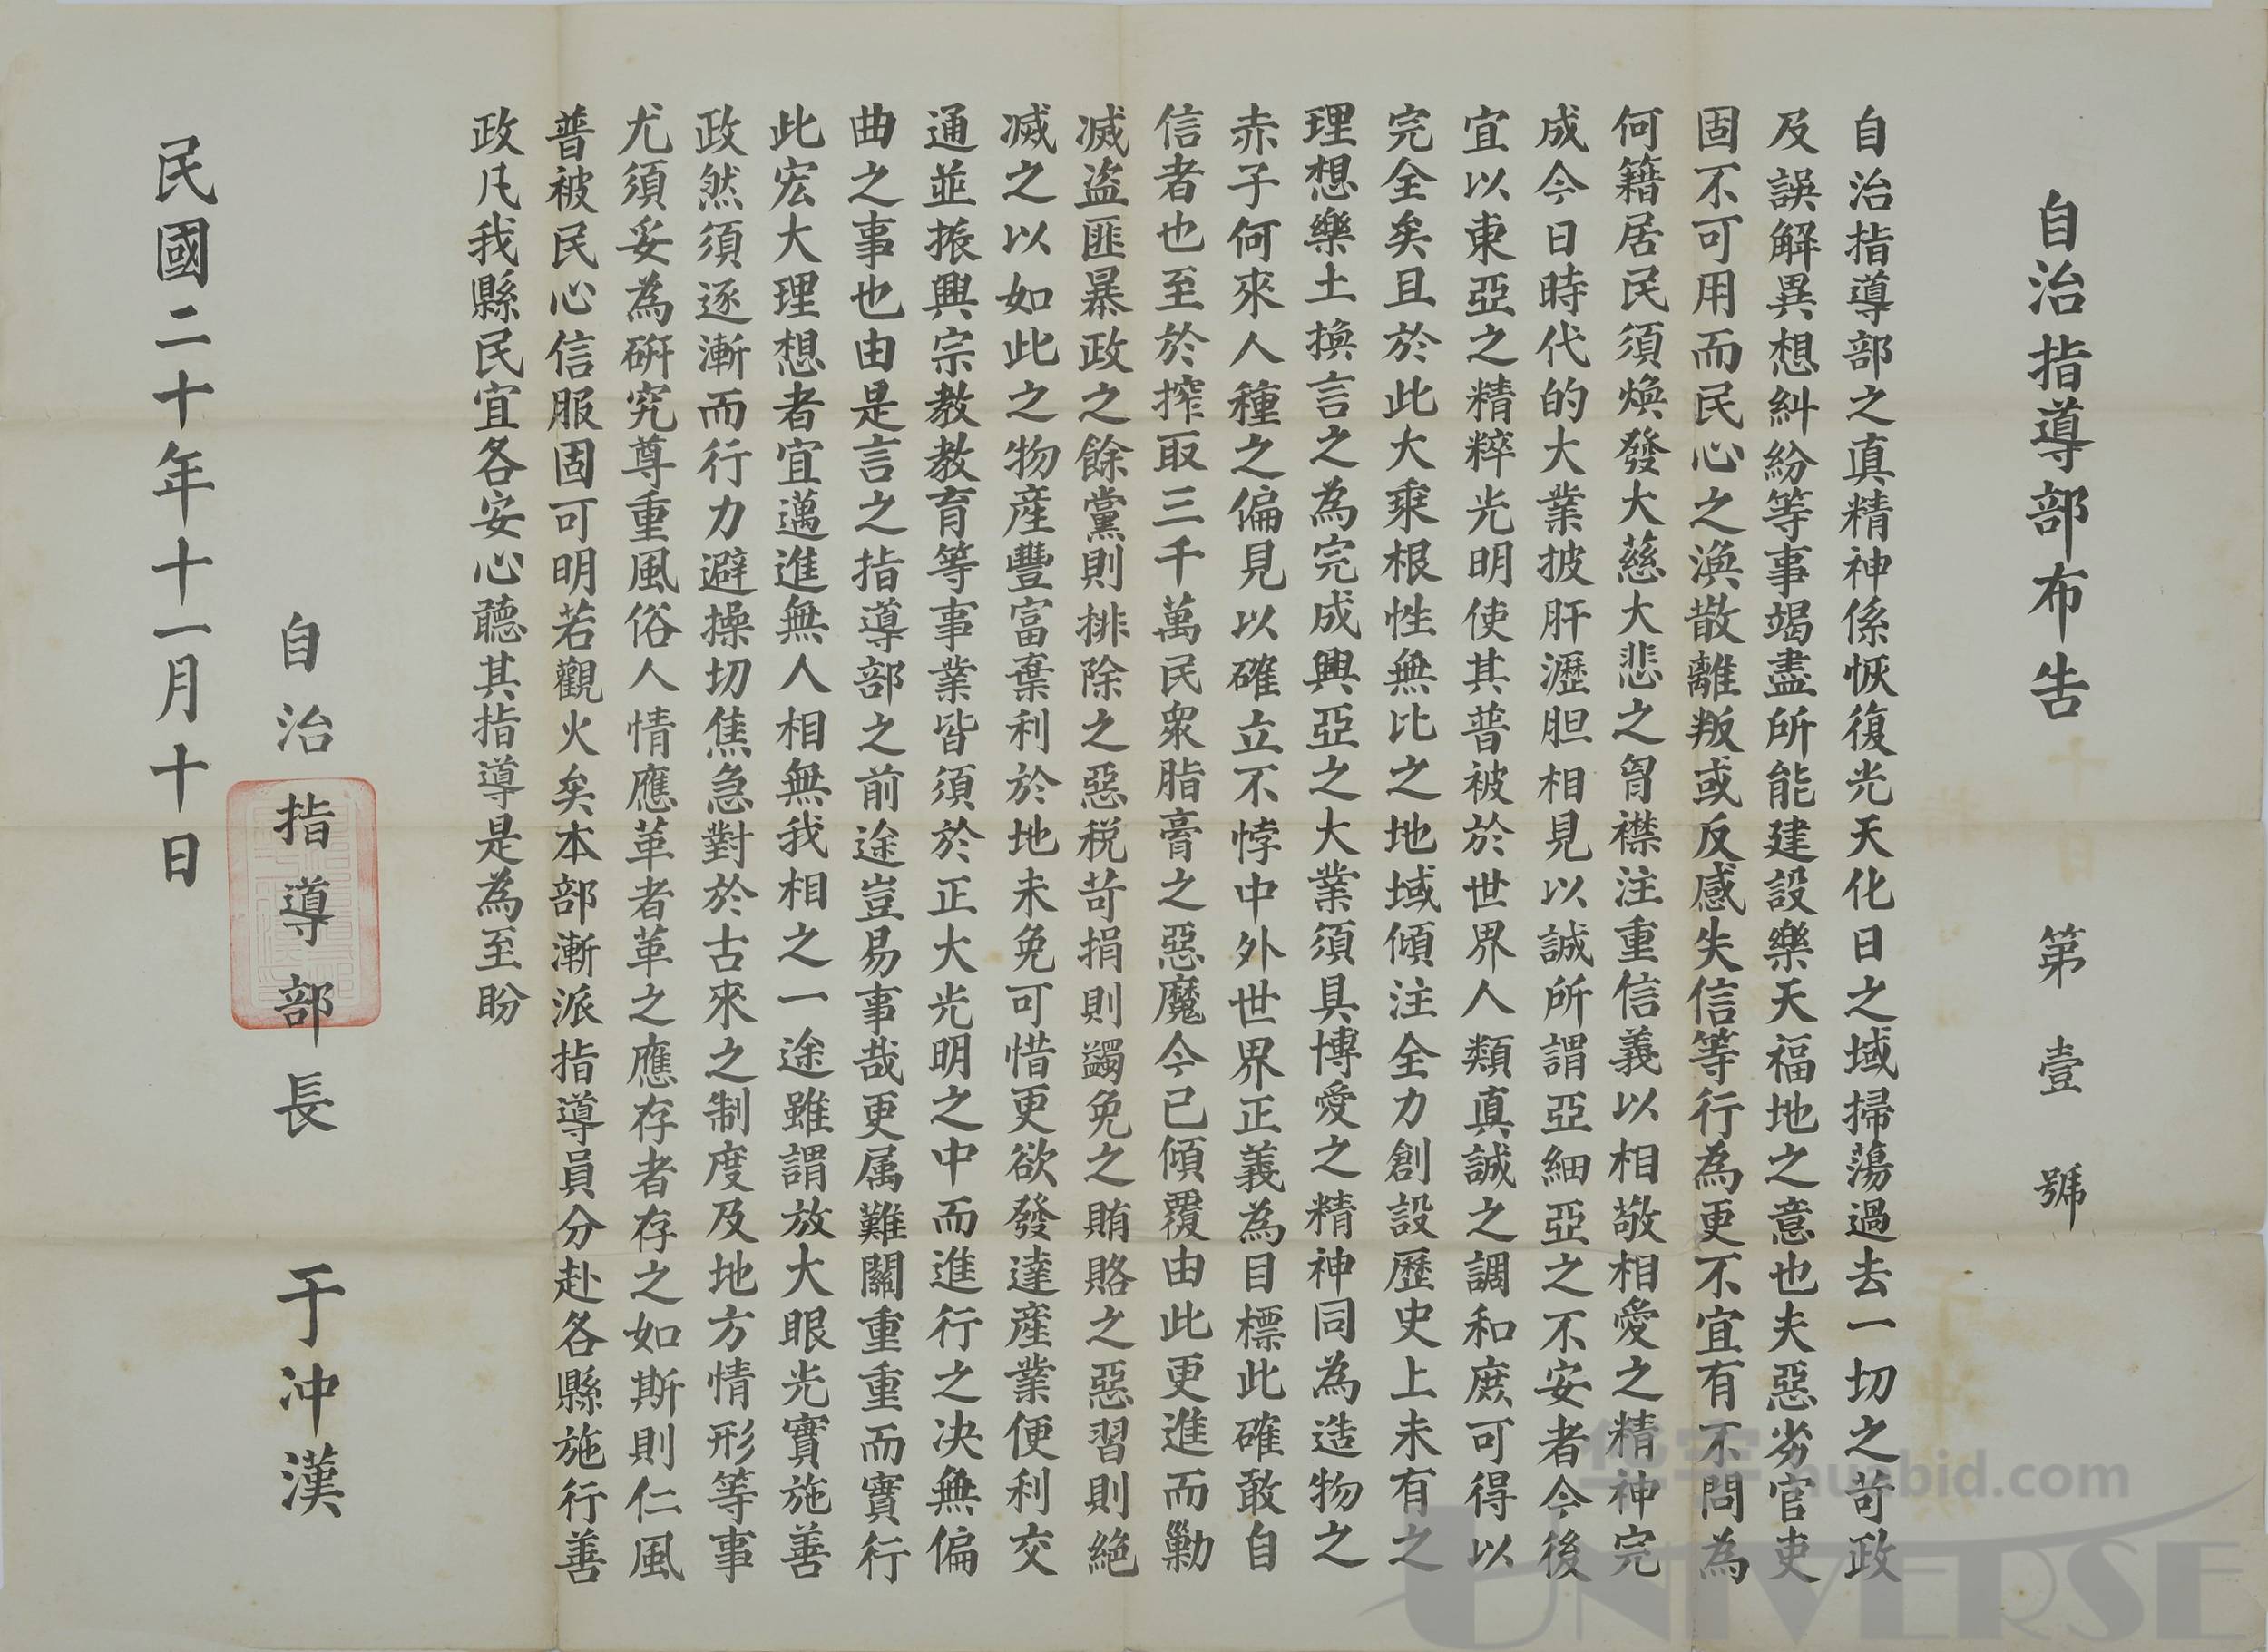 自治指導部布告　第壹號
自治指導部之真精神係恢復光天化日之域掃蕩過去一切之苛政
及誤解異想糾紛等事竭盡所能建設樂天福地之意也夫惡劣官吏
固不可用而民心之渙散離叛或反感失信等行為更不宜有不問為
何籍居民須煥發大慈大悲之胷襟注重信義以相敬相愛之精神完
成今日時代的大業披肝瀝胆相見以誠所謂亞細亞之不安者今後
宜以東亞之精粹光明使其普被於世界人類真誠之調和庻可得以
完全矣且於此大乘根性無比之地域傾注全力創設歷史上未有之
理想樂土換言之為完成興亞之大業須具博愛之精神同為造物之
赤子何來人種之偏見以確立不悖中外世界正義為目標此確敢自
信者也至於搾取三千萬民衆脂膏之惡魔今已傾覆由此更進而勦
滅盜匪暴政之餘黨則排除之惡税苛捐則蠲免之賄賂之惡習則絕
滅之以如此之物産豐富棄利於地未免可惜更欲發達産業便利交
通並振興宗教教育等事業皆須於正大光明之中而進行之决無偏
曲之事也由是言之指導部之前途豈易事哉更属難關重重而實行
此宏大理想者宜邁進無人相無我相之一途雖謂放大眼光實施善
政然須逐漸而行力避操切焦急對於古來之制度及地方情形等事
尤須妥為研究尊重風俗人情應革者革之應存者存之如斯則仁風
普被民心信服固可明若觀火矣本部漸派指導員分赴各縣施行善
政凡我縣民宜各安心聽其指導是為至盼
自治指導部長　于冲漢
民國二十年十一月十日
华宇 huabid.com
UNIVERSE